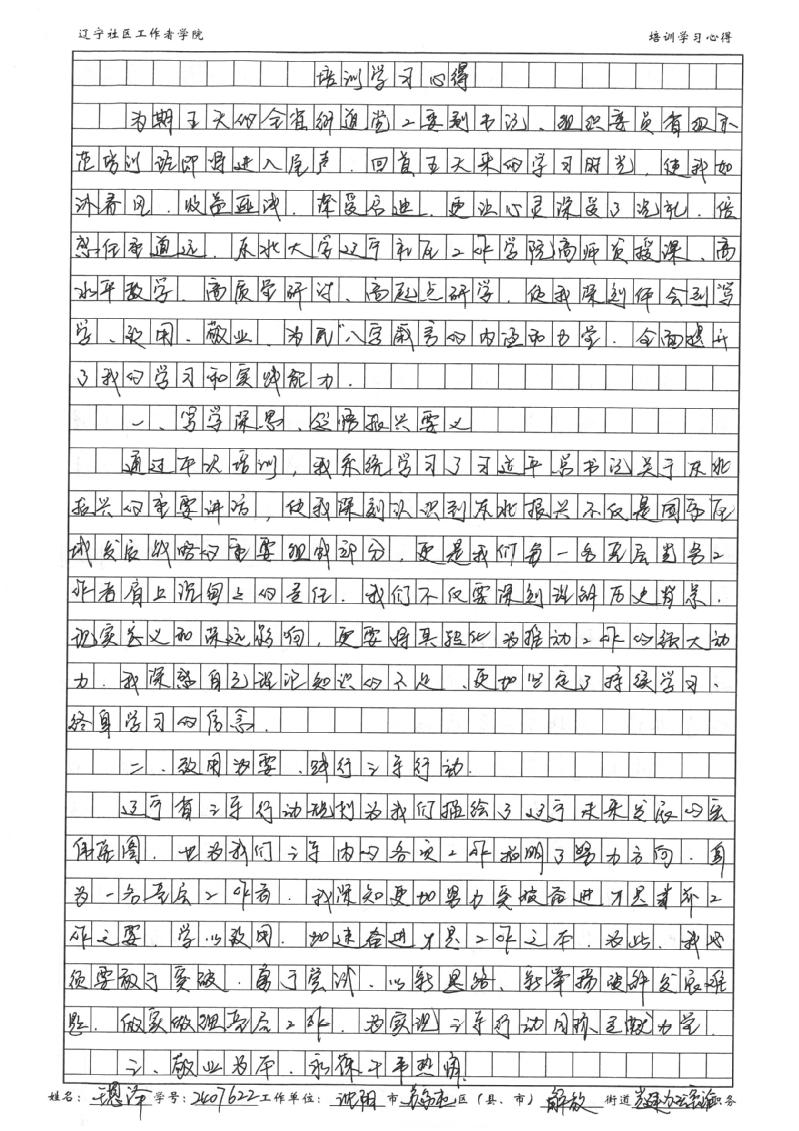 辽宁社区工作者学院 培训学习心得
培训学习心得
为期五天的全省街道党工委副书记、组织委员省级示
范培训班即将进入尾声。回首五天来的学习时光,使我如
沐春风、收益匪浅、深受启迪,更让心灵深受了洗礼,倍
感任重道远。东北大学辽宁社区工作学院高师资授课、高
水平教学、高质量研讨、高起点研学,使我深刻体会到"笃
学、致用、敬业、为民"八字箴言的内涵和力量,全面提升
了我的学习和实践能力。
一、笃学深思,领悟振兴要义
通过本次培训,我系统学习了习近平总书记关于东北
振兴的重要讲话,使我深刻认识到东北振兴不仅是国家区
域发展战略的重要组成部分,更是我们每一名基层党务工
作者肩上沉甸甸的责任。我们不仅要深刻理解历史背景、
现实意义和深远影响,更要将其转化为推动工作的强大动
力。我深感自己理论知识的不足,更加坚定了持续学习、
终身学习的信念。
二、致用为要,践行三年行动
辽宁省三年行动规划为我们描绘了辽宁未来发展的宏
伟蓝图,也为我们三年内的各项工作指明了努力方向。身
为一名基层工作者,我深知更加努力突破奋进才是工
作之要,学以致用,加速奋进才是工作之本。为此,我必
须要敢于突破、勇于尝试,以新思路、新举措破解发展难
题,做实做强基层工作,为实现三年行动目标贡献力量。
三、敬业为本,永葆干事热情
姓名: 学号:2407622 工作单位: 沈阳 市 区(县、市) 解放 街道 职务